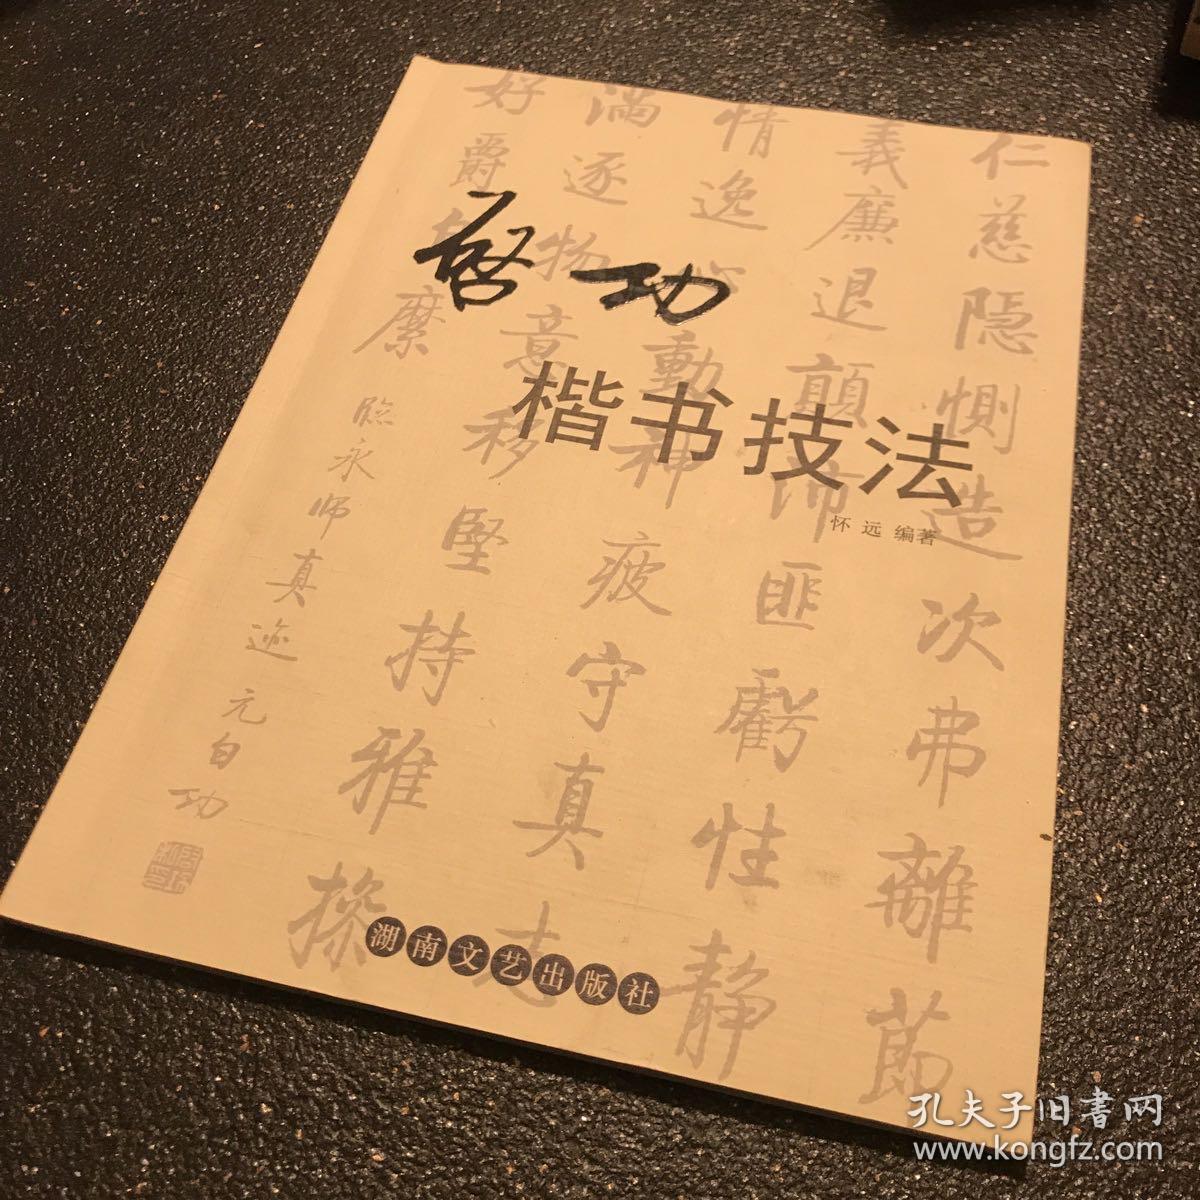 启功
楷书技法
怀远 编著
仁慈隱惻造次弗離節
義廉退顛沛匪虧性靜
情逸心動神疲守真志
滿逐物意移堅持雅操
好爵自縻
臨永師真迹 元白功
湖南文艺出版社
孔夫子旧書网
www.kongfz.com